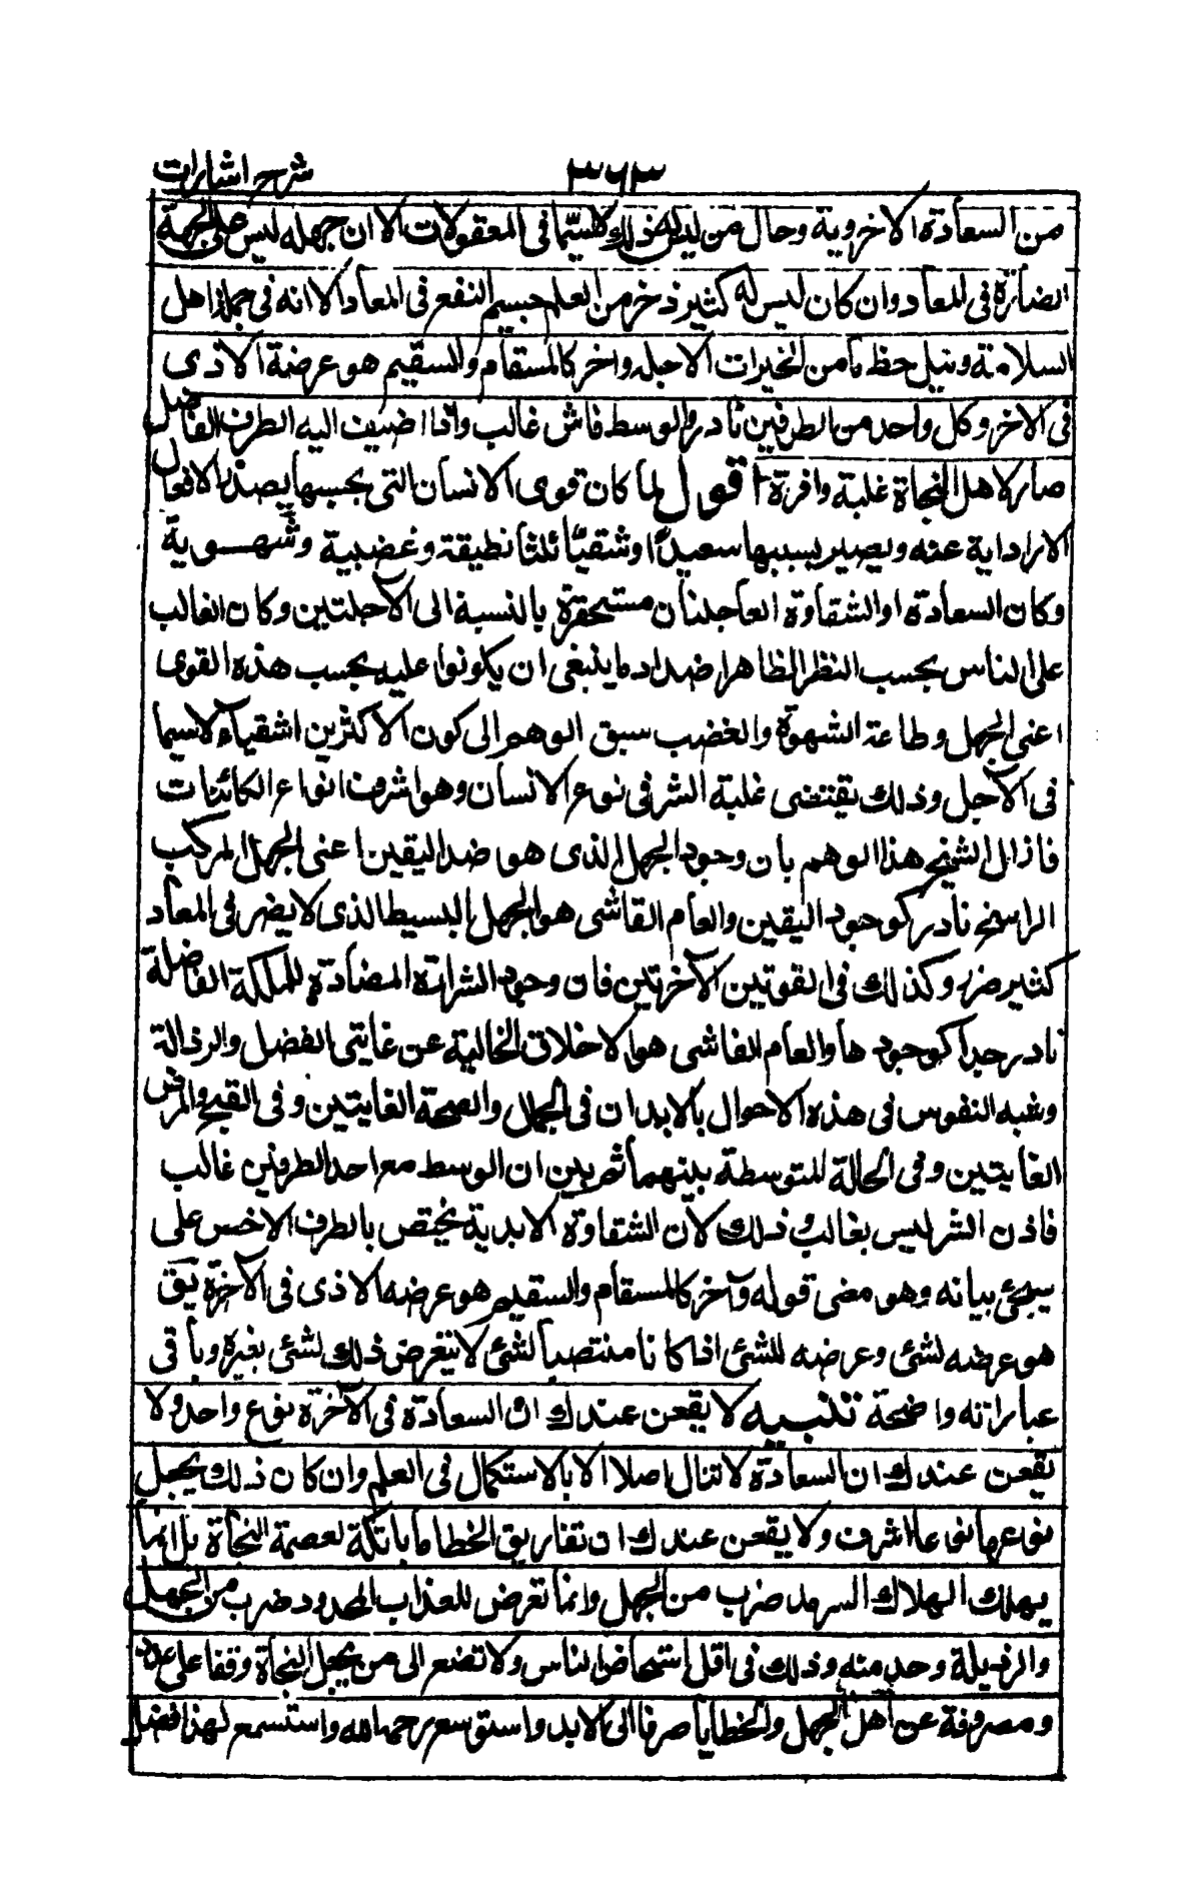 شرح اشارات
٣٦٣
من السعادة الاخروية وحال من ليس له ذلك لاسيّما فى المعقولات الا ان جهله ليس على الجهة
الضارة فى المعاد وان كان ليس له كثير ذخر من العلم جسيم النفع فى المعاد الا انه فى جملة اهل
السلامة ونيل حظ ما من الخيرات الاجله واخر كالمسقام والسقيم هو عرضة الاذى
فى الاخر وكل واحد من الطرفين نادر والوسط فاش غالب واذا اضيف اليه الطرف الفاضل
صار لاهل النجاة غلبة وافرة اقول لما كان قوى الانسان التى بحسبها يصدر الافعال
الارادية عنه ويصير بسببها سعيدًا او شقيًّا ثلثا نطيقة وغضبية وشهوية
وكان السعادة او الشقاوة العاجلتان مستحقرة بالنسبة الى الآجلتين وكان الغالب
على الناس بحسب النظر الظاهر اضداد ما ينبغى ان يكونوا عليه بحسب هذه القوى
اعنى الجهل وطاعة الشهوة والغضب سبق الوهم الى كون الاكثرين اشقياء لاسيما
فى الآجل وذلك يقتضى غلبة الشر فى نوع الانسان وهو اشرف انواع الكائنات
فازال الشيخ هذا الوهم بان وجود الجهل الذى هو ضد اليقين اعنى الجهل المركب
الراسخ نادر كوجود اليقين والعام الفاشى هو الجهل البسيط الذى لا يضر فى المعاد
كثير ضرر وكذلك فى القوتين الآخرتين فان وجود الشرارة المضادة للملكة الفاضلة
نادر جدا كوجودها والعام الفاشى هو الاخلاق الخالية عن غايتى الفضل والرذالة
وشبه النفوس فى هذه الاحوال بالابدان فى الجمال والصحة الغايتين وفى القبح والمرض
الغايتين وفى الحالة المتوسطة بينهما ثم بين ان الوسط مع احد الطرفين غالب
فاذن الشر ليس بغالب وذلك لان الشقاوة الابدية يختص بالطرف الاخس على
يجئ بيانه وهو معنى قوله وآخر كالمسقام والسقيم هو عرضه الاذى فى الآخرة يق
هو عرضه لشئ وعرضه للشئ اذا كانا منتصبا لشئ لا يتعرض ذلك لشئ بغيره وباقى
عباراته واضحة تنبيه لا يقعن عندك ان السعادة فى الآخرة نوع واحد ولا
يقعن عندك ان السعادة لا تنال اصلا الا بالاستكمال فى العلم وان كان ذلك يجعل
نوعها نوعا اشرف ولا يقعن عندك ان تفاريق الخطايا باتكة لعصمة النجاة بل انما
يهلك الهلاك السرمد ضرب من الجهل وانما تعرض للعذاب المحدود ضرب من الجهل
والرذيلة وحد منه وذلك فى اقل اشخاص الناس ولا تضع الى من يجعل النجاة وقفا على عدد
ومصروفة عن اهل الجهل والخطايا صرفا الى الابد واستوسع رحمة الله واستسمع لهذا فضل